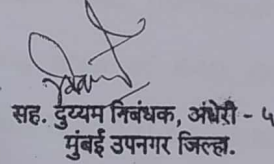 सह. दुय्यम निबंधक, अंधेरी - ५
मुंबई उपनगर जिल्हा.